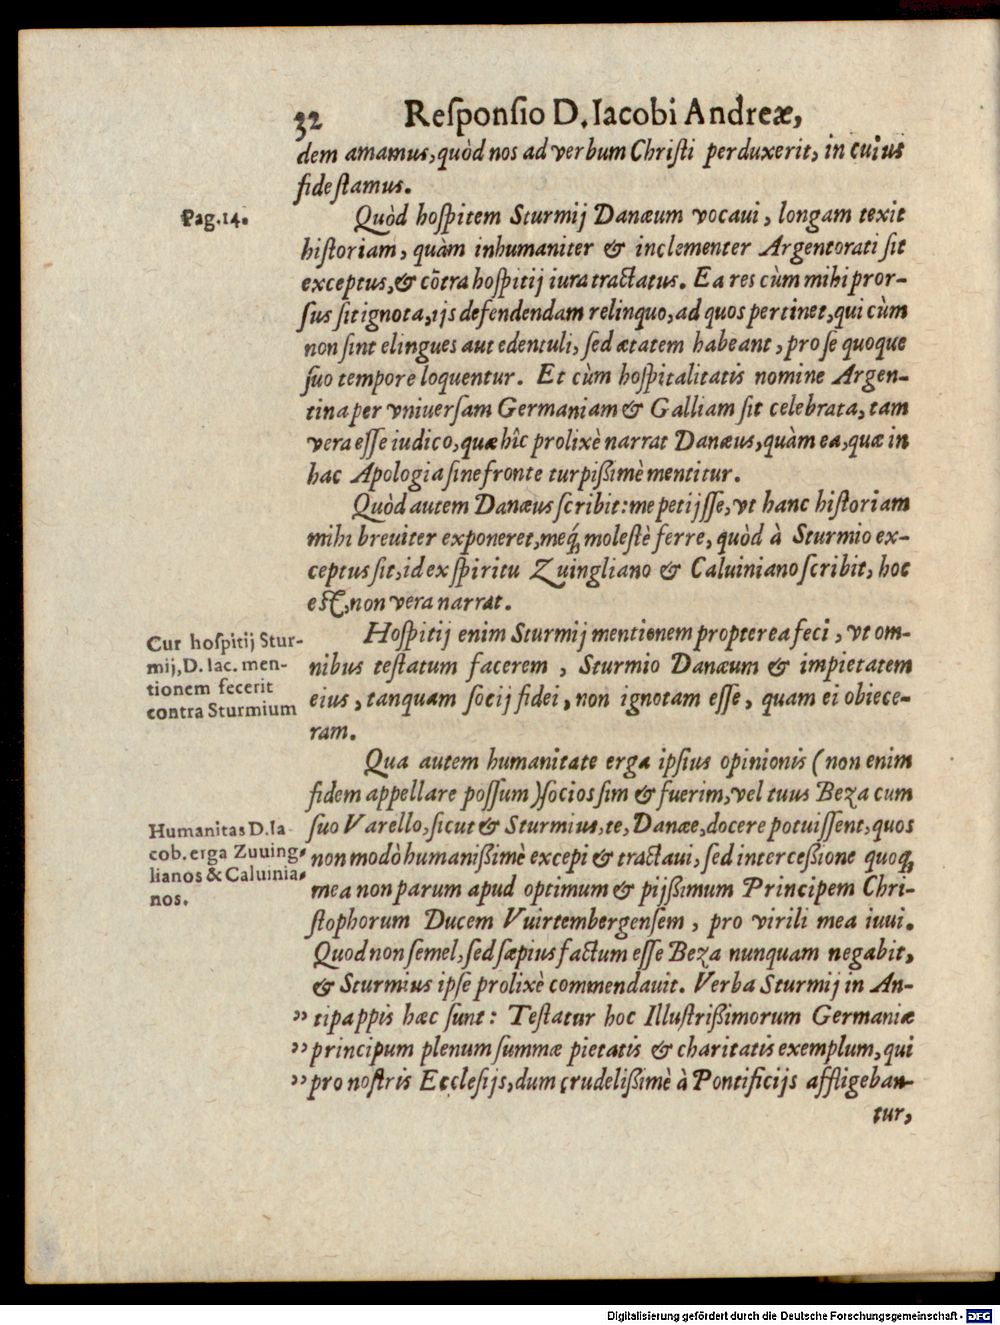 32 Reſponſio D. Iacobi Andreæ,
dem amamus, quòd nos ad verbum Chriſti perduxerit, in cuius
fide ſtamus.
Pag. 14.
Quòd hoſpitem Sturmij Danæum vocaui, longam texit
hiſtoriam, quàm inhumaniter & inclementer Argentorati ſit
exceptus, & cõtra hoſpitij iura tractatus. Ea res cùm mihi pror-
ſus ſit ignota, ijs defendendam relinquo, ad quos pertinet, qui cùm
non ſint elingues aut edentuli, ſed ætatem habeant, pro ſe quoque
ſuo tempore loquentur. Et cùm hoſpitalitatis nomine Argen-
tina per vniuerſam Germaniam & Galliam ſit celebrata, tam
vera eſſe iudico, quæ hîc prolixè narrat Danæus, quàm ea, quæ in
hac Apologia ſine fronte turpißimè mentitur.
Quòd autem Danæus ſcribit: me petijſſe, vt hanc hiſtoriam
mihi breuiter exponeret, meq́; moleſtè ferre, quòd à Sturmio ex-
ceptus ſit, id ex ſpiritu Zuingliano & Caluiniano ſcribit, hoc
eſt, non vera narrat.
Cur hoſpitij Stur-
mij, D. Iac. men-
tionem fecerit
contra Sturmium
Hoſpitij enim Sturmij mentionem propterea feci, vt om-
nibus teſtatum facerem, Sturmio Danæum & impietatem
eius, tanquam ſocij fidei, non ignotam eſſe, quam ei obiece-
ram.
Qua autem humanitate erga ipſius opinionis (non enim
fidem appellare poſſum) ſocios ſim & fuerim, vel tuus Beza cum
ſuo Varello, ſicut & Sturmius, te, Danæe, docere potuiſſent, quos
non modò humanißimè excepi & tractaui, ſed interceßione quoq;
mea non parum apud optimum & pijßimum Principem Chri-
ſtophorum Ducem Vuirtembergenſem, pro virili mea iuui.
Humanitas D. Ia-
cob. erga Zuuing-
lianos & Caluinia-
nos.
Quod non ſemel, ſed ſæpius factum eſſe Beza nunquam negabit,
& Sturmius ipſe prolixè commendauit. Verba Sturmij in An-
" tipappis hæc ſunt: Teſtatur hoc Illuſtrißimorum Germaniæ
" principum plenum ſummæ pietatis & charitatis exemplum, qui
" pro noſtris Eccleſijs, dum crudelißimè à Pontificijs affligeban-
tur,
Digitalisierung gefördert durch die Deutsche Forschungsgemeinschaft - DFG